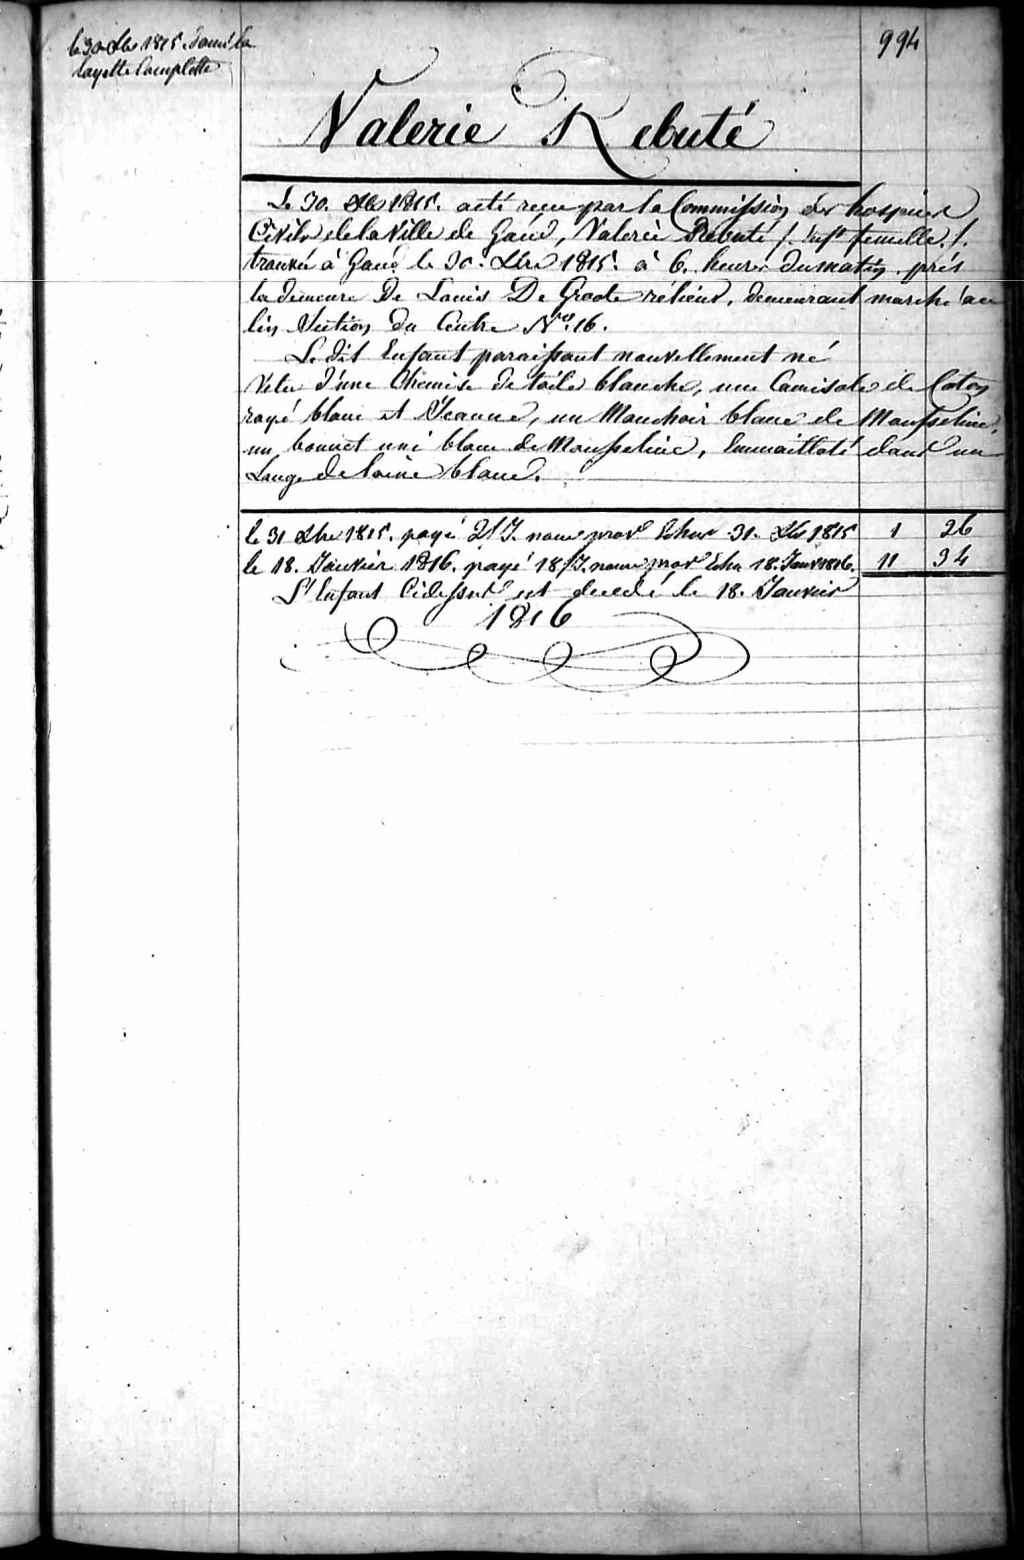 le 30 Xbre 1815. donné la
layette Complette
994
Valerie Rebuté
Le 30. Xbre 1815. acté reçu par la Commission des hospices
Civils de la Ville de Gand, Valerie Rebuté /. enft femelle ./.
trouvée à Gand le 30. Xbre 1815. à 6. heures du matin, près
la demeure De Louis De Groote demeurant marché au
lin Section du Centre Nro. 16.
Le dit Enfant paraissant nouvellement né
Vetu d'une Chemise de toile blanche, une Camisole de Coton
rayé blanc et Jeaune, un Mouchoir blanc de Mousseline,
un bonnet uni blanc de Mousseline, Emmailloté dans un
Lange de laine blanc.
le 31 Xbre 1815. payé 2/J. nourr prov Echus 31. Xbre 1815 1 26
le 18. Janvier 1816. payé 18/J. nourr prov Echu 18. Janv 1816. 11 34
L'Enfant Cidessus est decedé le 18. Janvier
1816